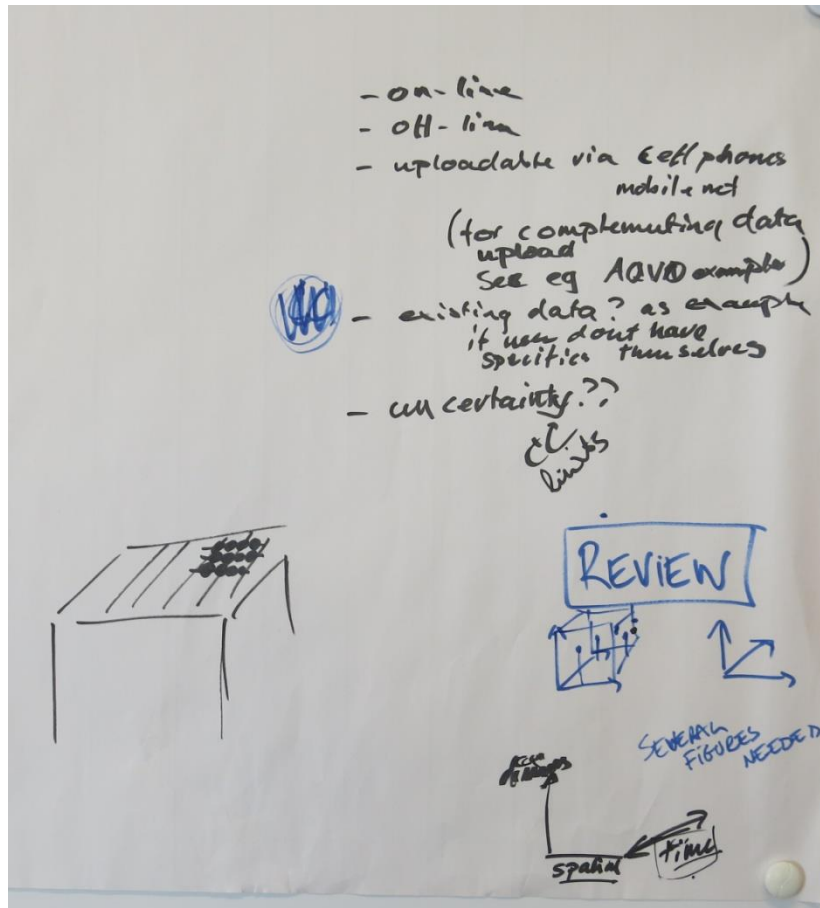 - on-line
- off-line
- uploadable via cell phones
mobile net
(for complementing data
upload
see eg AQVD example)
- existing data? as example
if user dont have
specifics themselves
- uncertainty??
limits
REVIEW
SEVERAL
FIGURES
NEEDED
spatial
time